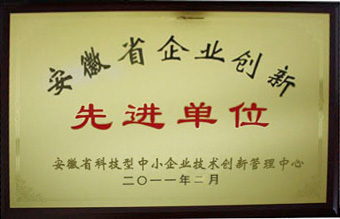 安徽省企业创新
先进单位
安徽省科技型中小企业技术创新管理中心
二〇一一年二月